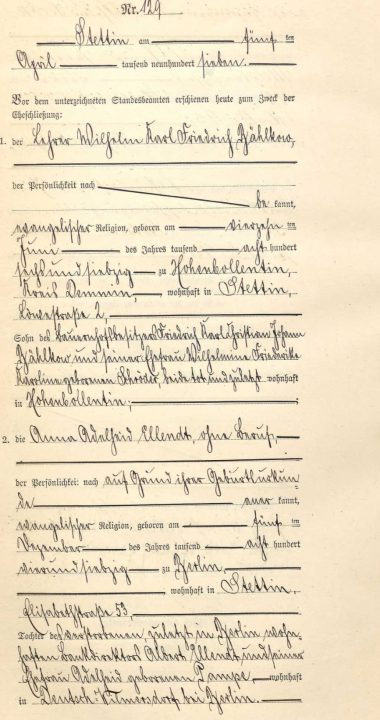 Nr. 129
Stettin am fünf ten
April tausend neunhundert sieben.
Vor dem unterzeichneten Standesbeamten erschienen heute zum Zweck der
Eheschließung:
1. der Lehrer Wilhelm Karl Friedrich
der Persönlichkeit nach
be kannt,
evangelischer Religion, geboren am vierzehn ten
Juni des Jahres tausend acht hundert
sechsundsiebzig zu Hohenbollentin,
Kreis Demmin, wohnhaft in Stettin,
Löwestraße 2,
Sohn des Bauernhofsbesitzers Friedrich Karl Christian Johann
und seiner Ehefrau Wilhelmine Friederike
Karoline geborenen Schröder, beide tot, und zuletzt wohnhaft
in Hohenbollentin;
2. die Anna Adelheid Ellendt, ohne Beruf,
der Persönlichkeit nach auf Grund ihrer Geburtsurkun
de aner kannt,
evangelischer Religion, geboren am fünf ten
Dezember des Jahres tausend acht hundert
vierundsiebzig zu Berlin,
wohnhaft in Stettin,
Elisabethstraße 53,
Tochter des verstorbenen, zuletzt in Berlin wohn-
haften Bankdirektors Albert Ellendt und seiner
Ehefrau Adelheid geborenen Pampe, wohnhaft
in Deutsch-Wilmersdorf bei Berlin.